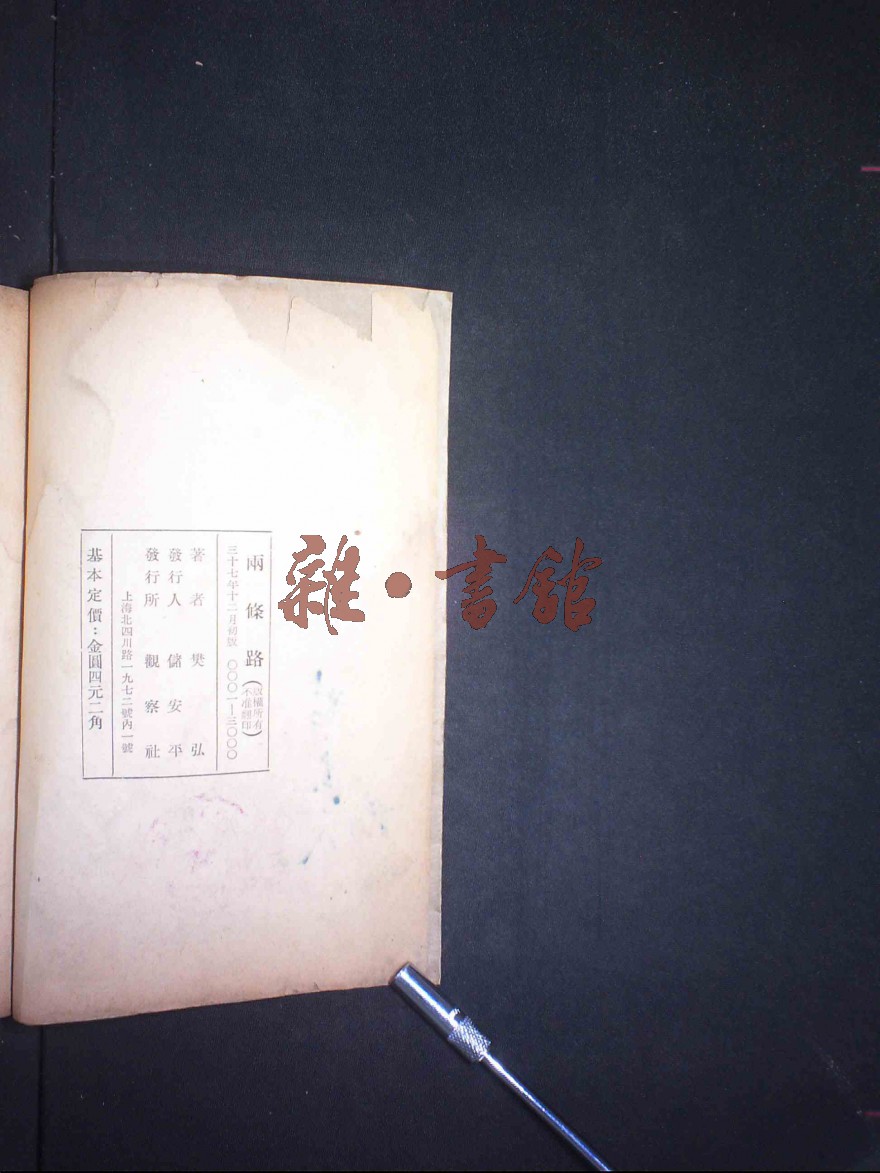 兩條路（版權所有
不准翻印）
三十七年十二月初版 〇〇〇一—三〇〇〇
著者 樊弘
發行人 儲安平
發行所 觀察社
上海北四川路一九七二號內一號
基本定價：金圓四元二角
雜·書館